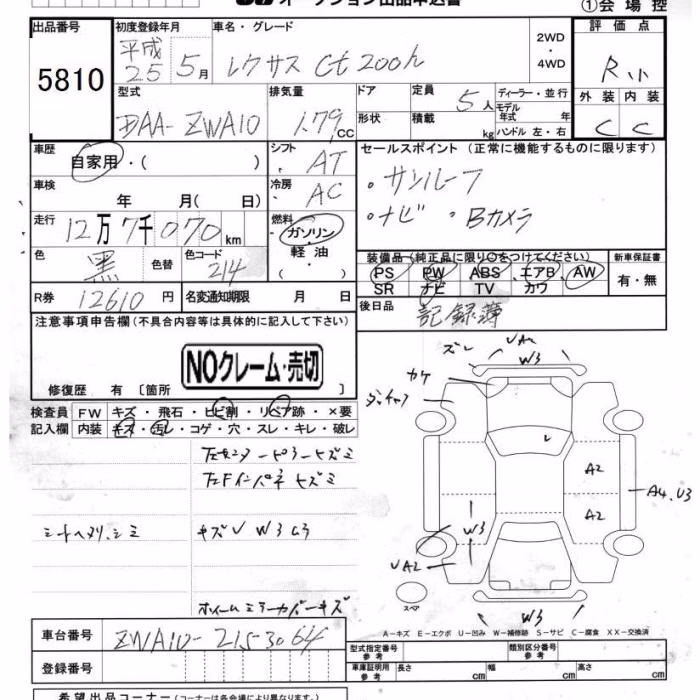 オークション出品申込書 ①会場控
出品番号 初度登録年月 車名・グレード 2WD・4WD 評価点
5810 平成25 5月 レクサス Ct200h R小
型式 排気量 ドア 定員 5人 ディーラー・並行 外装 内装
DAA-ZWA10 1.79cc 形状 積載 kg モデル年式 年式 ハンドル 左・右 C C
車歴 自家用・( ) シフト AT セールスポイント (正常に機能するものに限ります)
車検 年 月( 日) 冷房 AC ・サンルーフ
走行 12万7千070km 燃料 ガソリン・軽油・( ) ・ナビ ・Bカメラ
色 黒 色替 色コード 214
装備品(純正品に限り○をつけてください) 新車保証書
PS PW ABS エアB AW 有・無
SR ナビ TV カワ
R券 12610円 名変通知期限 月 日 後日品 記録簿
注意事項申告欄(不具合内容等は具体的に記入して下さい)
NOクレーム・売切
修復歴 有 〔箇所
検査員記入欄 FW キズ・飛石・ヒビ割・リペア跡・×要
内装 キズ・汚レ・コゲ・穴・スレ・キレ・破レ
ズレ W3
カケ
A2
A2
W3
UA2
スペア
W3
左センターピラーキズミ
左Fインパネキズミ
シートヘタリ、シミ キズV W3 G3
ホイームミラーカバーキズ
A-キズ E-エクボ U-凹み W-補修跡 S-サビ C-腐食 XX-交換済
車台番号 ZWA10-2153064
型式指定番号 参考 類別区分番号 参考
登録番号 車庫証明用 参考 長さ cm 幅 cm 高さ cm
希望出品コーナー (コーナーは各会場により異なります。)